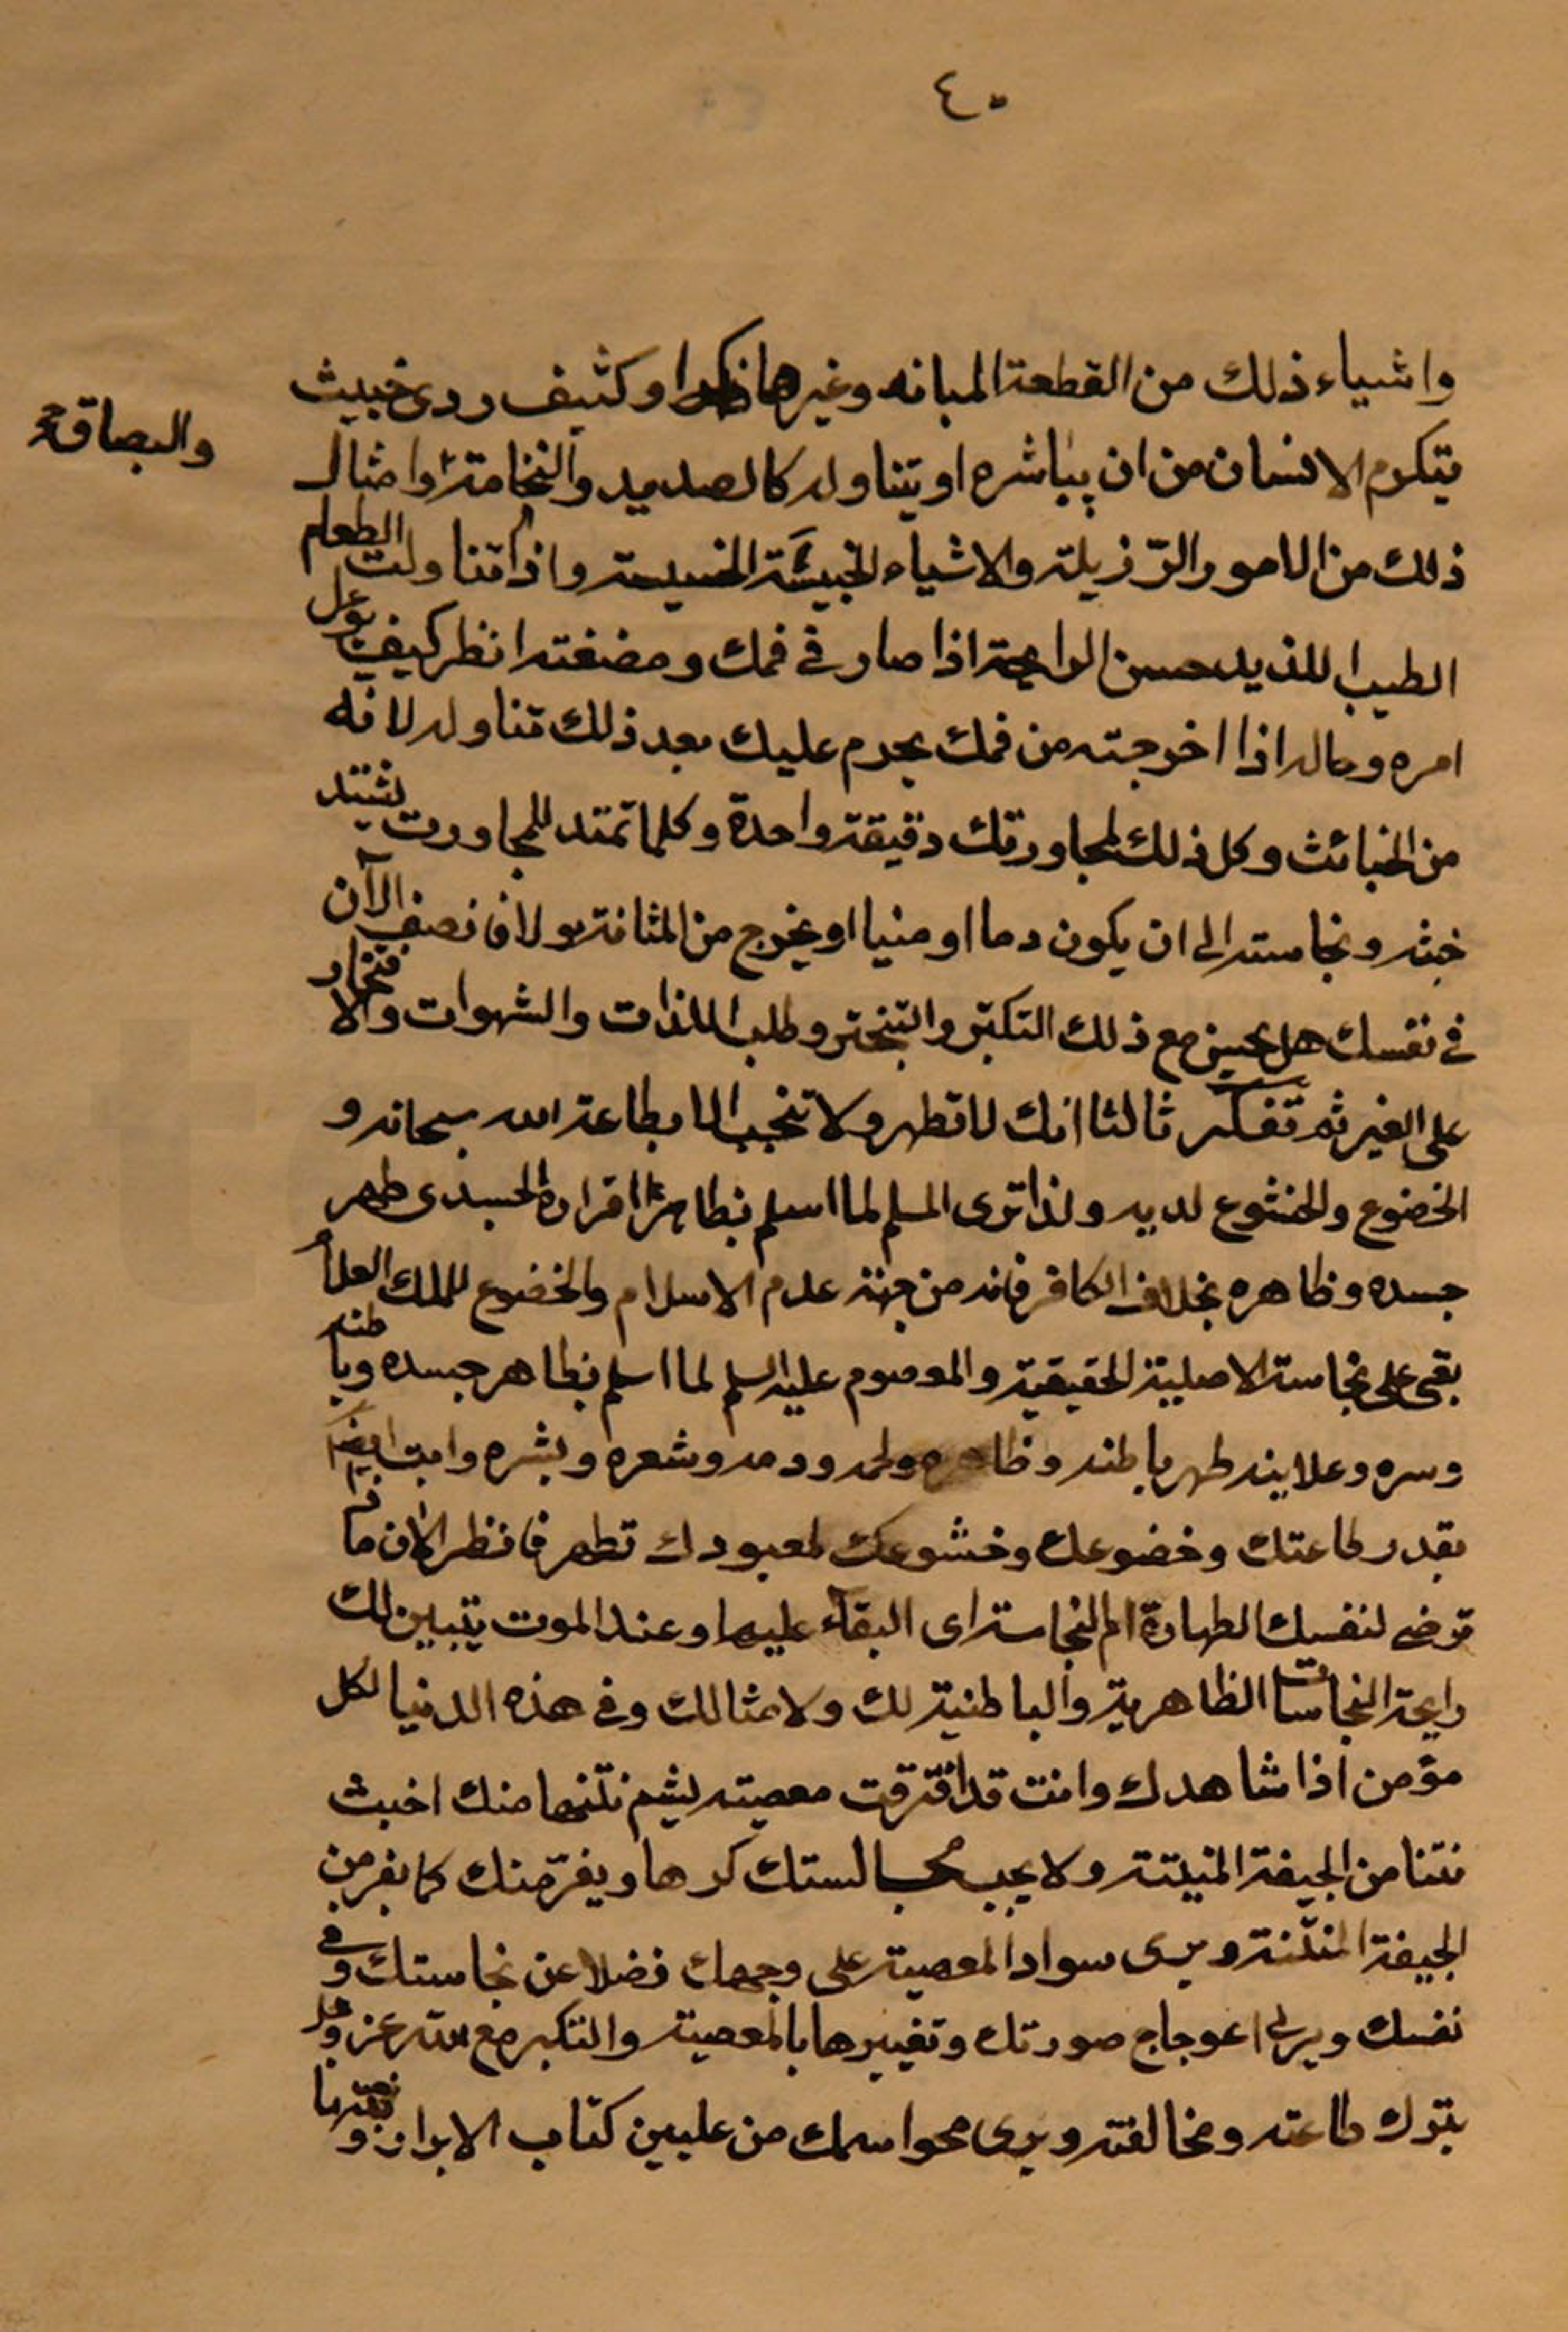 ٤٠
واشياء ذلك من القطعة المبانه وغيرها او كثيف ردى خبيث
والبصاق
يتكرم الانسان من ان يباشره او يتناوله كالصديد والنخامة وامثال
ذلك من الامور الرّذيلة والاشياء الخبيثة الخسيسة واذا تناولت الطعام
الطيب اللذيد حسن الرايحة اذا صار في فمك ومضغته انظر كيف يؤل
امره وماله اذا اخرجته من فمك يحرم عليك بعد ذلك تناوله لانه
من الخبائث وكل ذلك لمجاورتك دقيقة واحدة وكلما تمتد المجاورت يشتد
خبثه ونجاسته الى ان يكون دما او منيا او يخرج من المثانة بولا فانصف الآن
في نفسك هل يحسن مع ذلك التكبّر والتبختر وطلب اللذات والشهوات والافتخار
على الغير ثم تفكر ثالثا انك لا تطهر ولا تنجب الا بطاعة الله سبحانه و
الخضوع والخشوع لديه ولذا ترى المسلم لما اسلم بظاهر اقراره الجسدى طهر
جسده وظاهره بخلاف الكافر فانه من جهة عدم الاسلام والخضوع للملك العلام
بقى على نجاسة الاصلية الحقيقية والمعصوم عليه السلم لما اسلم بظاهر جسده وباطنه
وسره وعلانيه طهر باطنه وظاهره ولحمه ودمه وشعره وبشره وانت ايضا
بقدر طاعتك وخضوعك وخشوعك لمعبودك تطهر فانظر الان ماذا
ترضى لنفسك الطهارة ام النجاسة اى البقاء عليها وعند الموت يتبين لك
رايحة النجاسات الظاهرية والباطنية لك ولامثالك وفي هذه الدنيا لكل
مؤمن اذا شاهدك وانت قد اقترفت معصيته يشم نتنها منك اخبث
نتنا من الجيفة المنيتة ولا يحب مجالستك كرها ويفرّ منك كما يفر من
الجيفة المنتنة ويرى سواد المعصية على وجهك فضلا عن نجاستك وفي
نفسك ويرى اعوجاج صورتك وتغييرها بالمعصية والتكبر مع الله عز وجل
بترك طاعته ومخالفته ويرى محو اسمك من عليين كتاب الابرار و